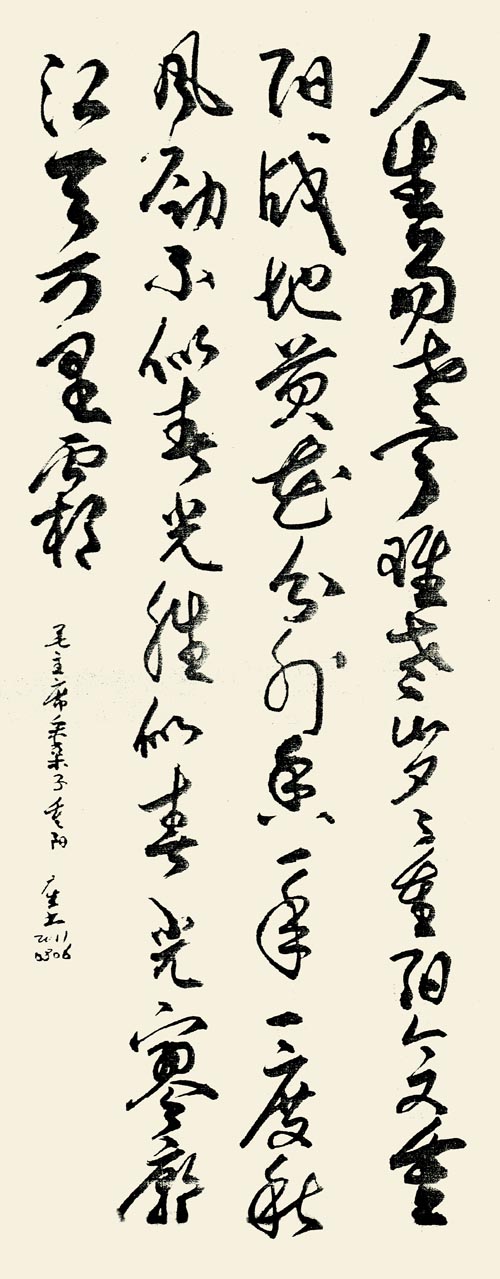 人生易老天难老岁々重阳今又重
阳战地黄花分外香一年一度秋
风劲不似春光胜似春光寥廓
江天万里霜
毛主席采桑子重阳